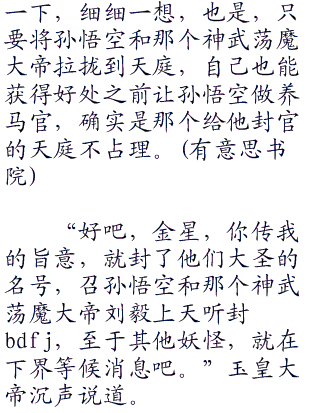 一下，细细一想，也是，只
要将孙悟空和那个神武荡魔
大帝拉拢到天庭，自己也能
获得好处之前让孙悟空做养
马官，确实是那个给他封官
的天庭不占理。(有意思书
院)
“好吧，金星，你传我
的旨意，就封了他们大圣的
名号，召孙悟空和那个神武
荡魔大帝刘毅上天听封
bdfj，至于其他妖怪，就在
下界等候消息吧。”玉皇大
帝沉声说道。